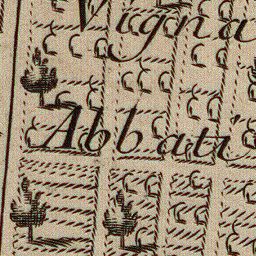 Vigna
Abbati